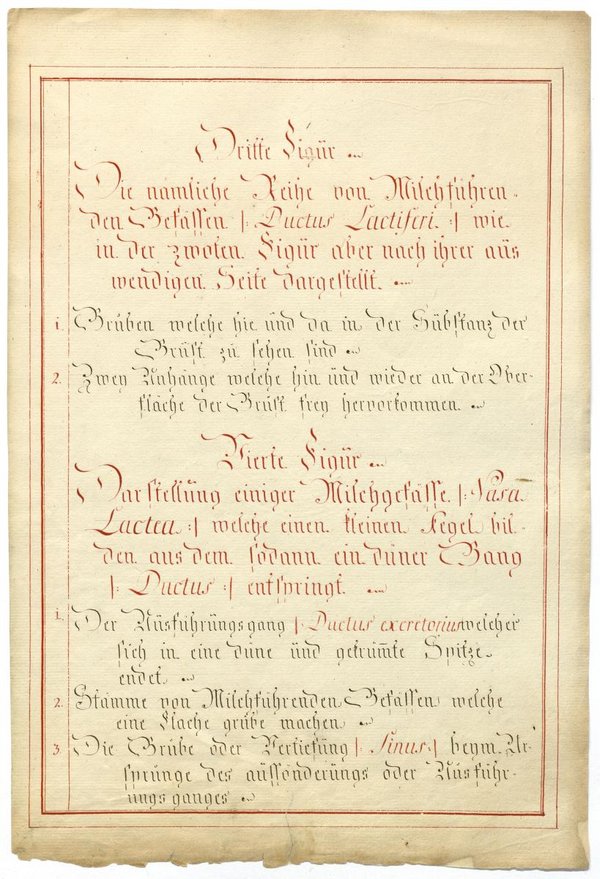 Dritte Figur
Die nämliche Reihe von Milchführen-
den Gefässen |: Ductus Lactiferi :| wie
in der zwoten Figur aber nach ihrer aus
wendigen Seite dargestellt.
1. Gruben welche hie und da in der Substanz der
Brust zu sehen sind
2. Zwey Anhänge welche hin und wieder an der Ober-
fläche der Brust frey hervorkommen.
Vierte Figur
Darstellung einiger Milchgefässe |: Vasa
Lactea :| welche einen kleinen Kegel bil-
den aus dem sodann ein düner Gang
|: Ductus :| entspringt.
1. Der Ausführungsgang |: Ductus excretorius welcher
sich in eine düne und gekrümte Spitze
endet
2. Stämme von Milchführenden Gefässen welche
eine flache grube machen
3. Die Grube oder Vertiefung |: Sinus :| beym Ur-
sprunge des aussonderungs oder Ausführ-
ungs ganges